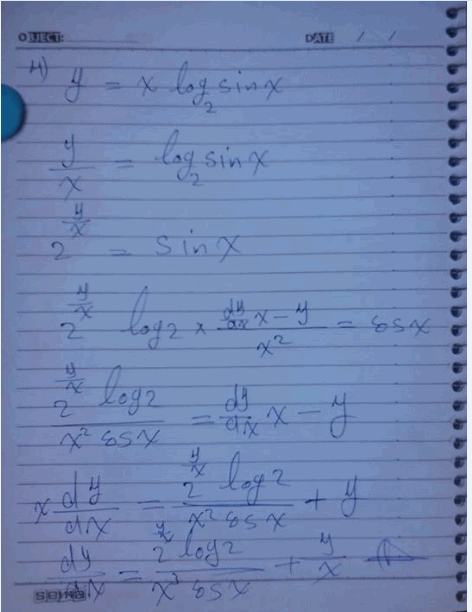 OBJECT: DATE / /
4) y = x log₂ sin x
y/x = log₂ sin x
2^(y/x) = sin x
2^(y/x) log 2 × (dy/dx x - y)/x² = cos x
(2^(y/x) log 2)/(x² cos x) = dy/dx x - y
x dy/dx = (2^(y/x) log 2)/(x² cos x) + y
dy/dx = (2^(y/x) log 2)/(x³ cos x) + y/x